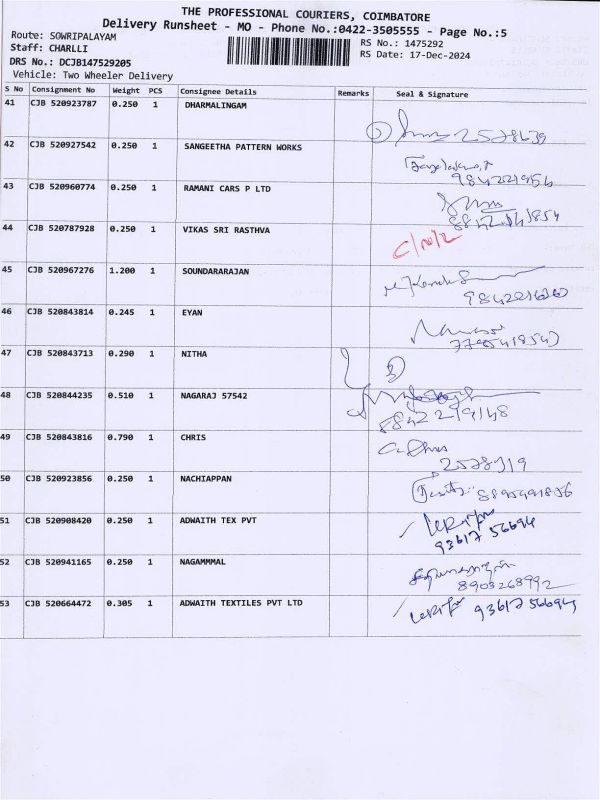 THE PROFESSIONAL COURIERS, COIMBATORE
Delivery Runsheet - MO - Phone No.:0422-3505555 - Page No.:5
Route: SOWRIPALAYAM
Staff: CHARLLI
RS No.: 1475292
DRS No.: DCJB147529205
RS Date: 17-Dec-2024
Vehicle: Two Wheeler Delivery
S No Consignment No Weight PCS Consignee Details Remarks Seal & Signature
41 CJB 520923787 0.250 1 DHARMALINGAM
42 CJB 520927542 0.250 1 SANGEETHA PATTERN WORKS
43 CJB 520960774 0.250 1 RAMANI CARS P LTD
44 CJB 520787928 0.250 1 VIKAS SRI RASTHVA
45 CJB 520967276 1.200 1 SOUNDARARAJAN
46 CJB 520843814 0.245 1 EYAN
47 CJB 520843713 0.290 1 NITHA
48 CJB 520844235 0.510 1 NAGARAJ 57542
8842219148
49 CJB 520843816 0.790 1 CHRIS
50 CJB 520923856 0.250 1 NACHIAPPAN
51 CJB 520908420 0.250 1 ADWAITH TEX PVT
93617 56694
52 CJB 520941165 0.250 1 NAGAMMMAL
8903268992
53 CJB 520664472 0.305 1 ADWAITH TEXTILES PVT LTD 93617 56694